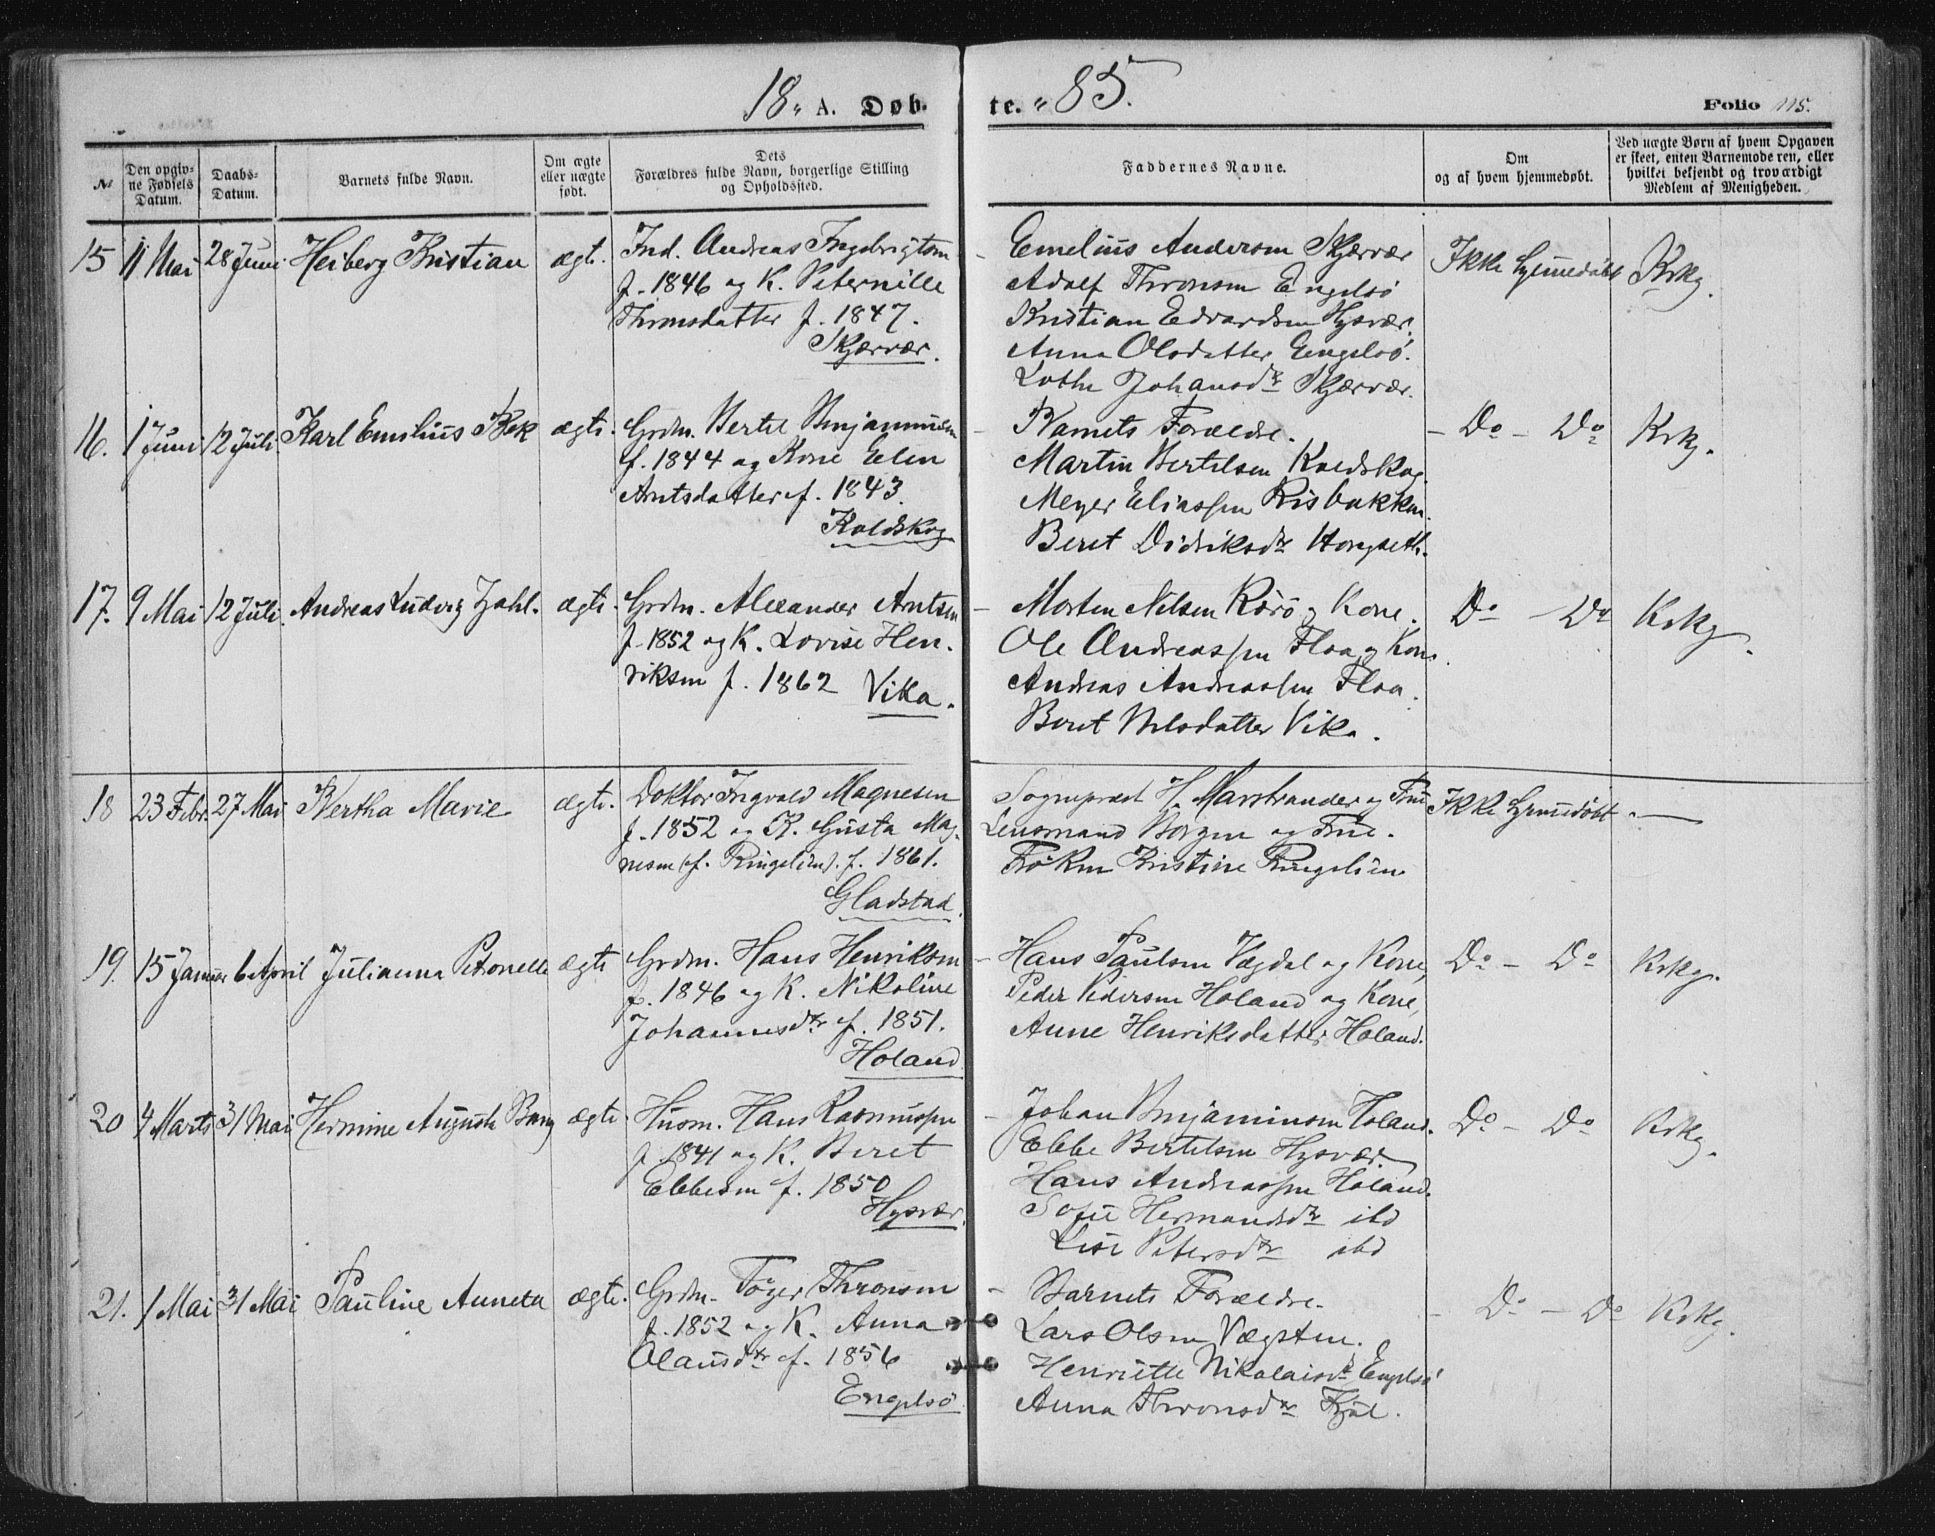 18 A. Døb-te. 85.
Folio 115.
№
Den opgivne Fødsels Datum.
Daabs-Datum.
Barnets fulde Navn.
Om ægte eller uægte født.
Dets Forældres fulde Navn, borgerlige Stilling og Opholdssted.
Faddernes Navne.
Om og af hvem hjemmedøbt.
Ved uægte Børn af hvem Opgaven er skeet, enten Barnemoderen, eller hvilket bekjendt og troværdigt Medlem af Menigheden.
15 11 Mai 28 Juni Heiberg Kristian ægte.
Ind. Andreas Ingebrigtsen
f. 1846 og K. Peternille
Thronsdatter f. 1847.
Skjærvær.
Emelius Andersen Skjærvær
Adolf Thronsen Engelsø
Kristian Edvardsen Hysvær.
Anna Olsdatter Engelsø.
Johansdtr Skjærvær.
Ikke hjemmedøbt Krkg.
16. 1 Juni 12 Juli Karl Emilius Bek ægte.
Grdm. Bertel Benjaminsen
f. 1844 og Kone Elen
Arntsdatter f. 1843.
Koldskog
Barnets Forældre.
Martin Bertelsen Koldskog
Meyer Eliassen Risbakken.
Beret Didriksdtr Hongseth.
Do - Do Krkg.
17. 9 Mai 12 Juli. Andreas Ludvig Zahl. ægte.
Grdm. Alexander Arntsen
f. 1852 og K. Lovise Hen-
riksen f. 1862 Vika.
Morten Nilsen Rørø og Kone.
Ole Andreassen Floa og Kone.
Andreas Andreassen Floa.
Beret Nilsdatter Vika.
Do - Do Krkg.
18 23 Febr. 27 Mai Bertha Marie ægte.
Doktor Ingvald Magnesen
f. 1852 og K. Gusta Mag-
nesen (f. Ringelien). f. 1861.
Gladstad.
Sogneprest H. Marstrander og Frue
Lensmand Borgen og Frue.
Frøken Kristine Ringelien
Ikke hjemmedøbt. —
19. 15 Januar 6 April Julianna Petronelle ægte
Grdm. Hans Henriksen
f. 1846 og K. Nikoline
Johannesdtr f. 1851.
Holand
Hans Paulsen Vægdal og Kone,
Peder Pedersen Holand og Kone,
Anne Henriksdatter Holand.
Do - Do Krkg.
20 4 Marts 31 Mai Hermine Augusta Bang ægte.
Husm. Hans Rasmussen
f. 1841 og K. Beret
Ebbesen f. 1850
Hysvær.
Johan Benjaminsen Holand.
Ebbe Bertelsen Hysvær.
Hans Andreassen Holand.
Sofie Hermansdtr ibd
Lise Petersdtr ibd
Do - Do Krkg.
21. 1 Mai 31 Mai Pauline Anneta ægte.
Grdm. Tøger Thronsen
f. 1852 og K. Anna
Olausdtr f. 1856
Engelsø
Barnets Forældre.
Lars Olsen Vægsten.
Henriette Nikolaisdtr Engelsø
Anna Thronsdtr
Do - Do Krkg.